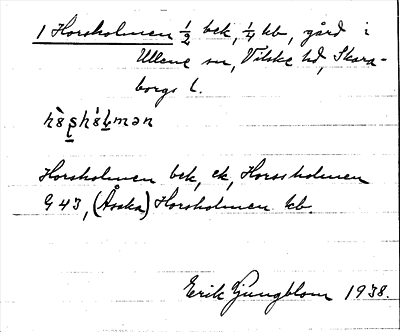 1 Horsholmen ½ bek, ¼ kb, gård i
Ullene sn, Vilske hd, Skara-
borgs l.
Horsholmen bek, ek, Horssholmen
G 43, (Åsaka) Horsholmen kb.
Erik Ljungblom 1938.